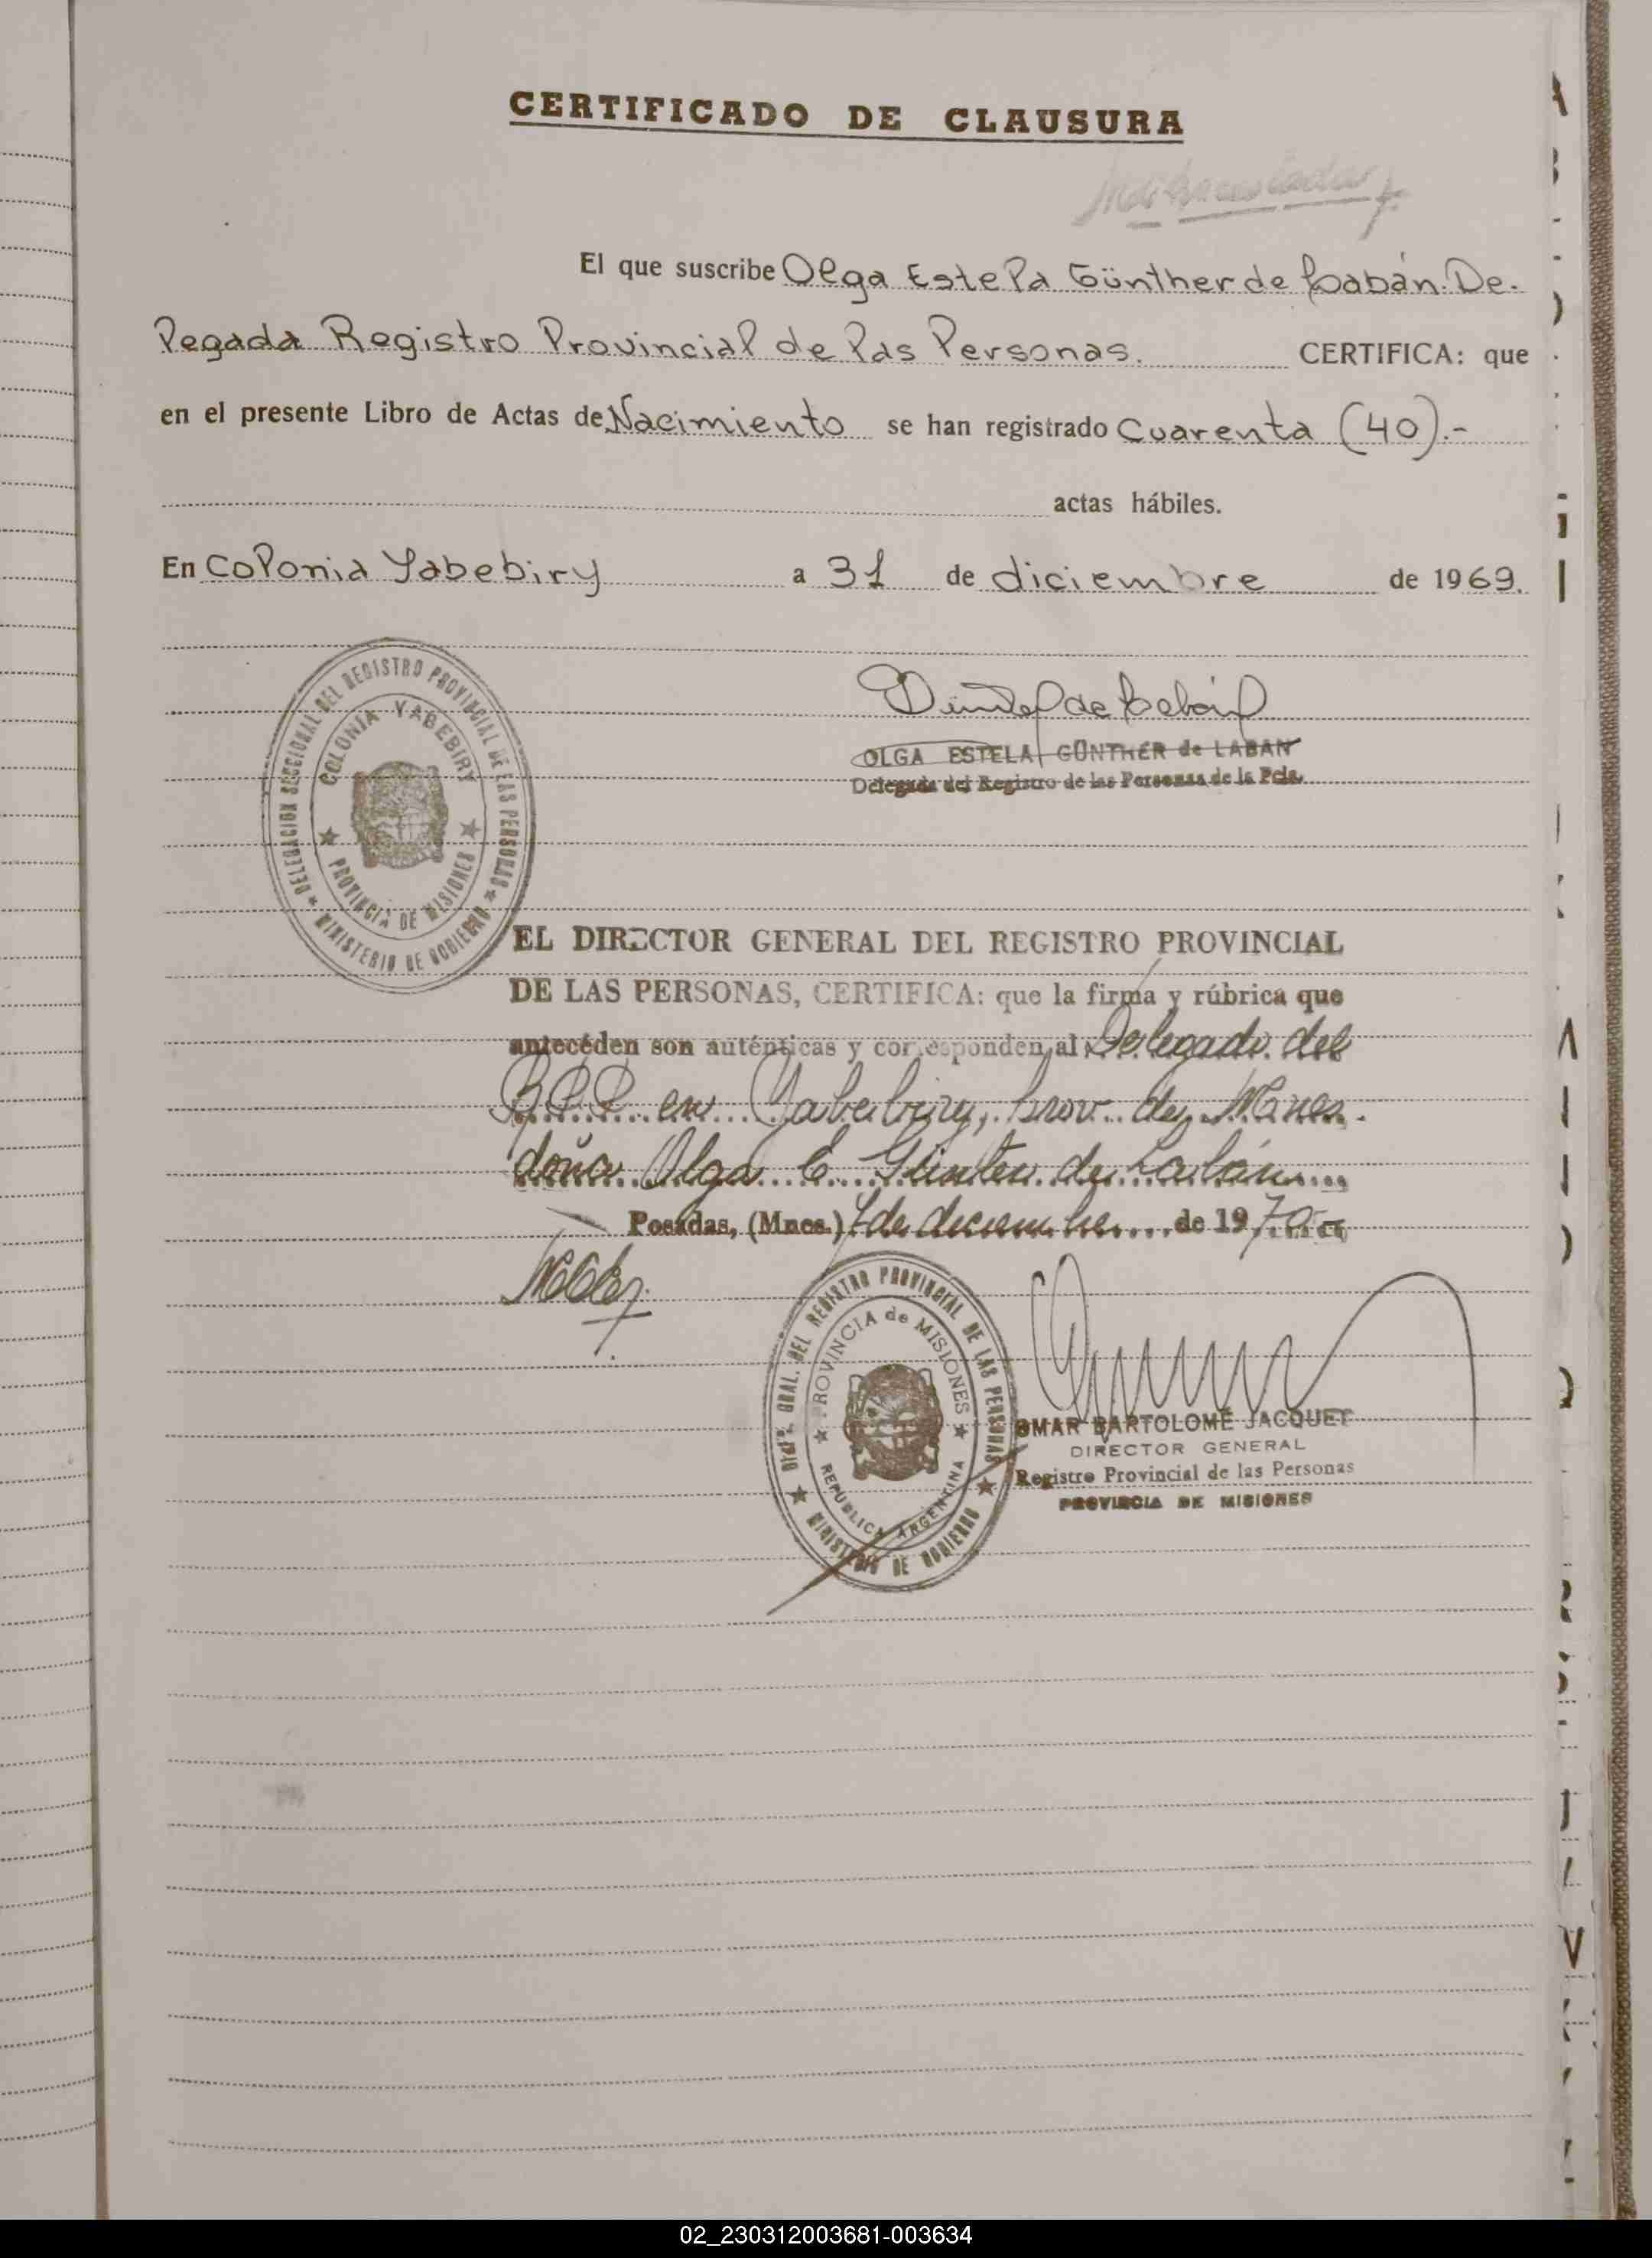 CERTIFICADO DE CLAUSURA
El que suscribe Olga Estela Günther de Labán. De-
legada Registro Provincial de las Personas. CERTIFICA: que
en el presente Libro de Actas de Nacimiento se han registrado Cuarenta (40).-
actas hábiles.
En Colonia Yabebiry a 31 de diciembre de 1969.
DELEGACION SECCIONAL DEL REGISTRO PROVINCIAL DE LAS PERSONAS
★ MINISTERIO DE GOBIERNO ★
COLONIA YABEBIRY
★ PROVINCIA DE MISIONES ★
OLGA ESTELA GÜNTHER de LABAN
Delegada del Registro de las Personas de la Pcia.
EL DIRECTOR GENERAL DEL REGISTRO PROVINCIAL
DE LAS PERSONAS, CERTIFICA: que la firma y rúbrica que
anteceden son auténticas y corresponden al Delegado del
R.P.P. en Yabebiry, prov. de Mnes.
doña Olga E. Günter de Labán
Posadas, (Mnes.) 7 de diciembre de 1970
DIRec. GRAL. DEL REGISTRO PROVINCIAL DE LAS PERSONAS
★ MINISTERIO DE GOBIERNO ★
★ PROVINCIA de MISIONES ★
REPUBLICA ARGENTINA
OMAR BARTOLOMÉ JACQUET
DIRECTOR GENERAL
Registro Provincial de las Personas
PROVINCIA DE MISIONES
02_230312003681-003634